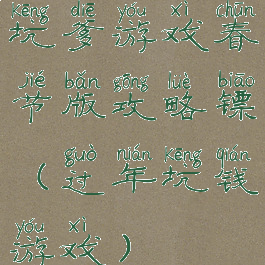 kēng diē yóu xì chūn
坑爹游戏春
jié bǎn gōng lüè biāo
节版攻略镖
guò nián kēng qián
（过年坑钱
yóu xì
游戏）